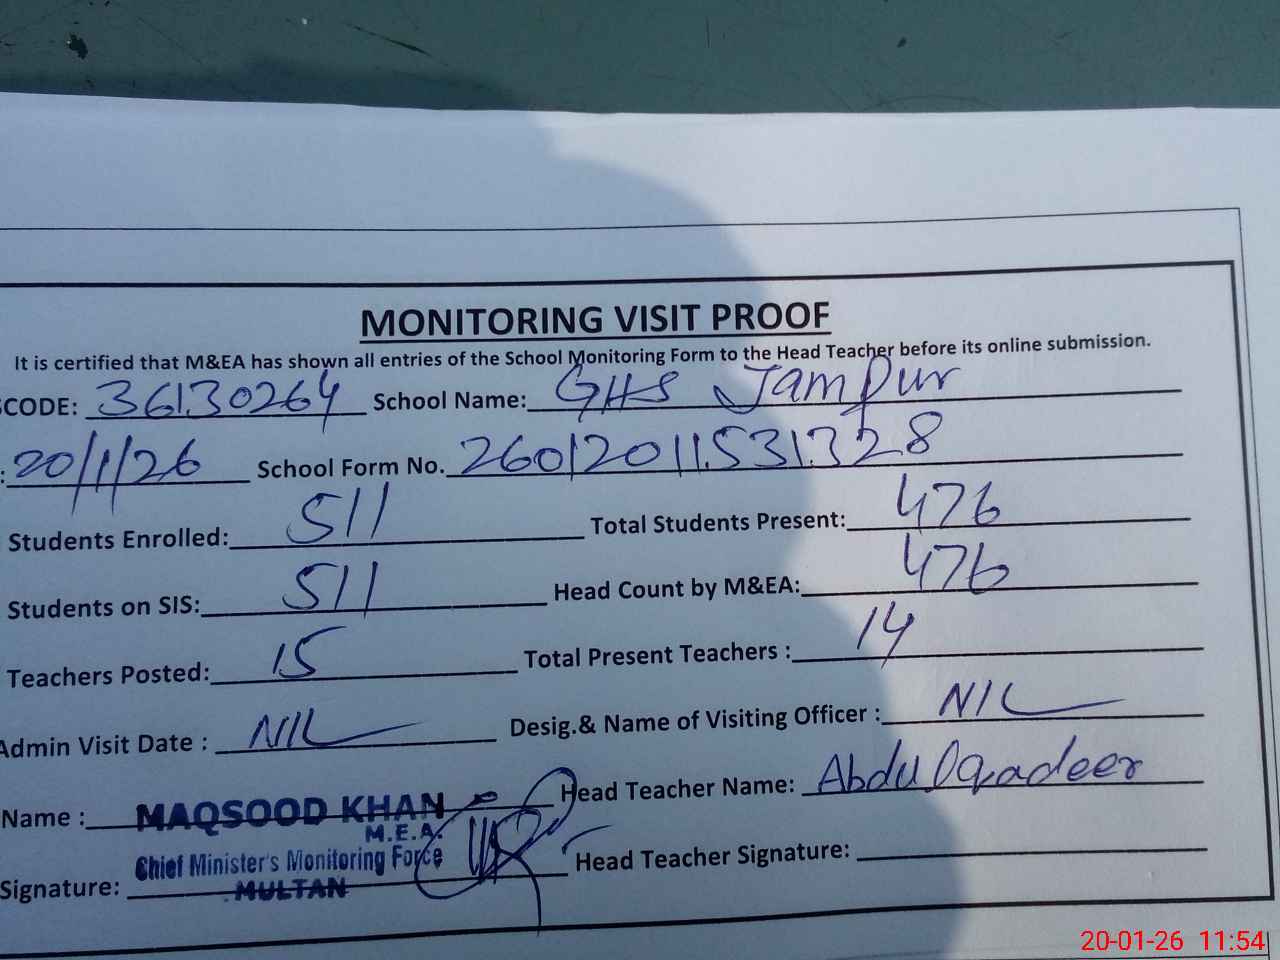 MONITORING VISIT PROOF
It is certified that M&EA has shown all entries of the School Monitoring Form to the Head Teacher before its online submission.
SCODE: 36130264 School Name: GHS Jampur
: 20/1/26 School Form No. 26012011531328
Students Enrolled: 511 Total Students Present: 476
Students on SIS: 511 Head Count by M&EA: 476
Teachers Posted: 15 Total Present Teachers : 14
Admin Visit Date : NIL Desig.& Name of Visiting Officer : NIL
Name : MAQSOOD KHAN Head Teacher Name: Abdul Qadeer
M.E.A.
Chief Minister's Monitoring Force
Signature: MULTAN Head Teacher Signature:
20-01-26 11:54